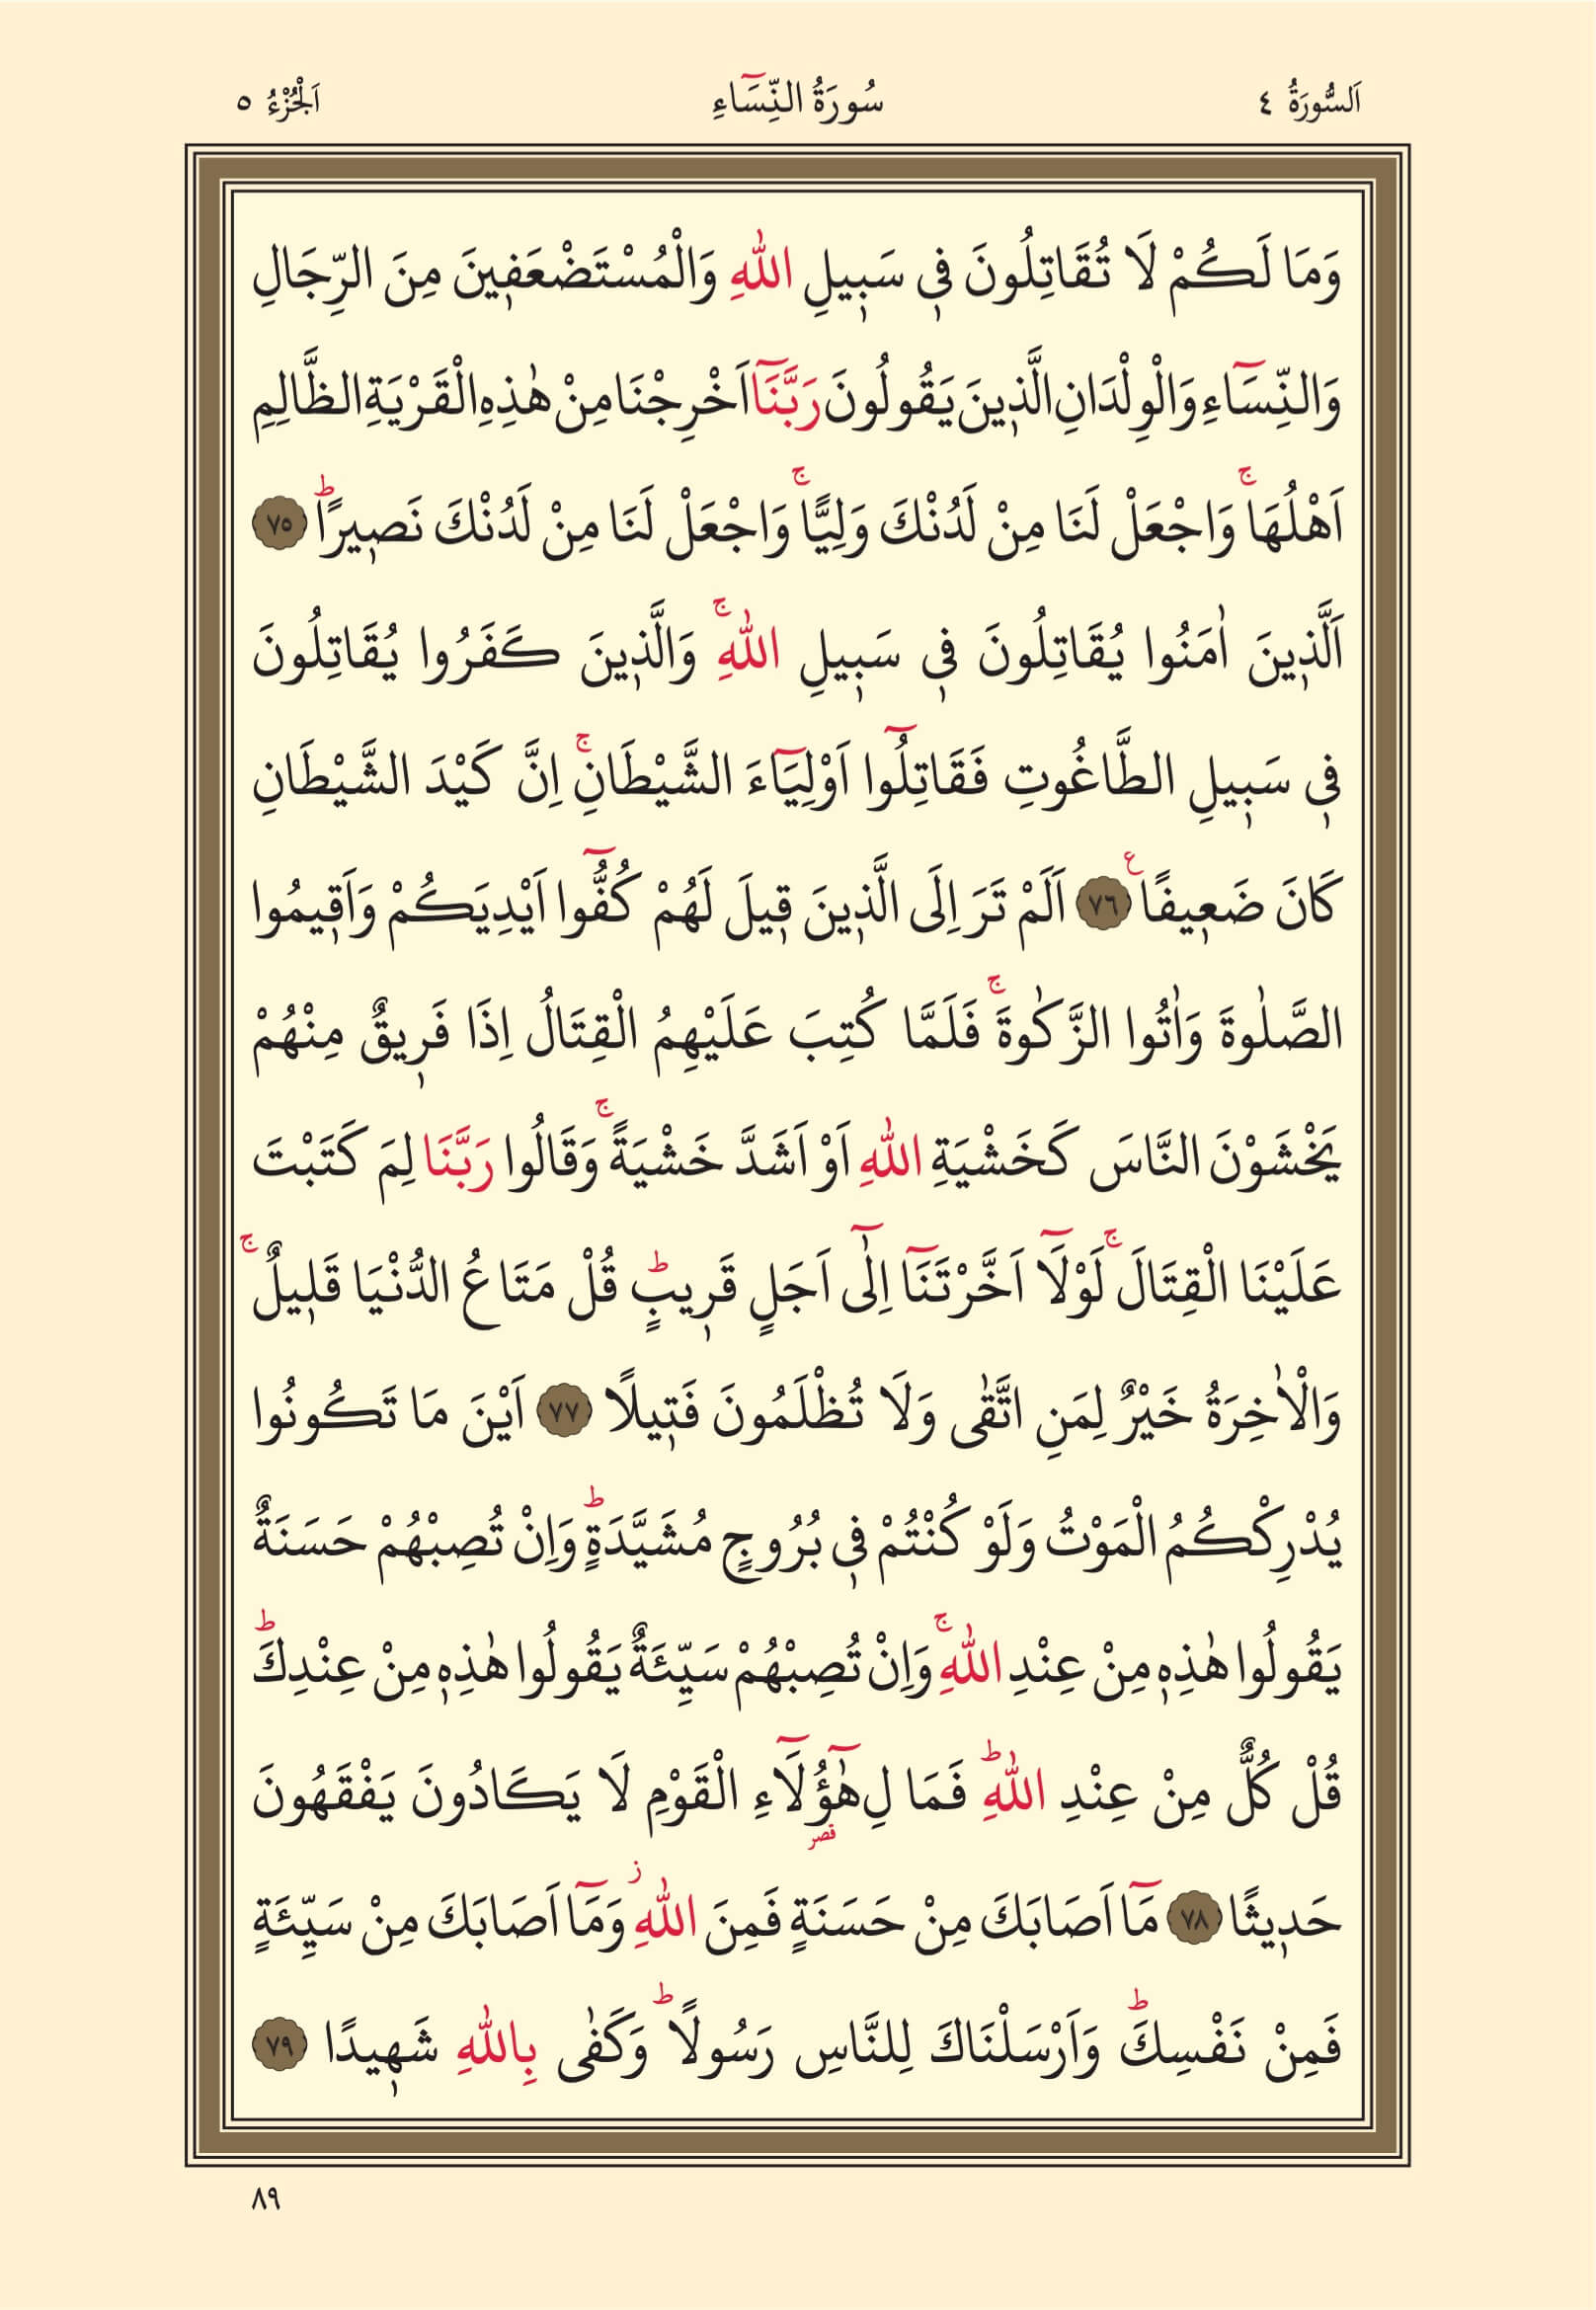 اَلسُّورَةُ ٤ سُورَةُ النِّسَٓاءِ اَلْجُزْءُ ٥
وَمَا لَكُمْ لَا تُقَاتِلُونَ ف۪ي سَب۪يلِ اللّٰهِ وَالْمُسْتَضْعَف۪ينَ مِنَ الرِّجَالِ
وَالنِّسَٓاءِ وَالْوِلْدَانِ الَّذ۪ينَ يَقُولُونَ رَبَّنَٓا اَخْرِجْنَا مِنْ هٰذِهِ الْقَرْيَةِ الظَّالِمِ
اَهْلُهَاۚ وَاجْعَلْ لَنَا مِنْ لَدُنْكَ وَلِيًّاۚ وَاجْعَلْ لَنَا مِنْ لَدُنْكَ نَص۪يرًاۜ ٧٥
اَلَّذ۪ينَ اٰمَنُوا يُقَاتِلُونَ ف۪ي سَب۪يلِ اللّٰهِۚ وَالَّذ۪ينَ كَفَرُوا يُقَاتِلُونَ
ف۪ي سَب۪يلِ الطَّاغُوتِ فَقَاتِلُٓوا اَوْلِيَٓاءَ الشَّيْطَانِۚ اِنَّ كَيْدَ الشَّيْطَانِ
كَانَ ضَع۪يفًاۧ ٧٦ اَلَمْ تَرَ اِلَى الَّذ۪ينَ ق۪يلَ لَهُمْ كُفُّٓوا اَيْدِيَكُمْ وَاَق۪يمُوا
الصَّلٰوةَ وَاٰتُوا الزَّكٰوةَۚ فَلَمَّا كُتِبَ عَلَيْهِمُ الْقِتَالُ اِذَا فَر۪يقٌ مِنْهُمْ
يَخْشَوْنَ النَّاسَ كَخَشْيَةِ اللّٰهِ اَوْ اَشَدَّ خَشْيَةًۚ وَقَالُوا رَبَّنَا لِمَ كَتَبْتَ
عَلَيْنَا الْقِتَالَۚ لَوْلَٓا اَخَّرْتَنَٓا اِلٰٓى اَجَلٍ قَر۪يبٍۜ قُلْ مَتَاعُ الدُّنْيَا قَل۪يلٌۚ
وَالْاٰخِرَةُ خَيْرٌ لِمَنِ اتَّقٰى وَلَا تُظْلَمُونَ فَت۪يلًا ٧٧ اَيْنَ مَا تَكُونُوا
يُدْرِكْكُمُ الْمَوْتُ وَلَوْ كُنْتُمْ ف۪ي بُرُوجٍ مُشَيَّدَةٍۜ وَاِنْ تُصِبْهُمْ حَسَنَةٌ
يَقُولُوا هٰذِه۪ مِنْ عِنْدِ اللّٰهِۚ وَاِنْ تُصِبْهُمْ سَيِّئَةٌ يَقُولُوا هٰذِه۪ مِنْ عِنْدِكَۜ
قُلْ كُلٌّ مِنْ عِنْدِ اللّٰهِۜ فَمَا لِ هٰٓؤُ۬لَٓاءِ الْقَوْمِ لَا يَكَادُونَ يَفْقَهُونَ
قصر
حَد۪يثًا ٧٨ مَٓا اَصَابَكَ مِنْ حَسَنَةٍ فَمِنَ اللّٰهِۘ وَمَٓا اَصَابَكَ مِنْ سَيِّئَةٍ
فَمِنْ نَفْسِكَۜ وَاَرْسَلْنَاكَ لِلنَّاسِ رَسُولًاۜ وَكَفٰى بِاللّٰهِ شَه۪يدًا ٧٩
٨٩